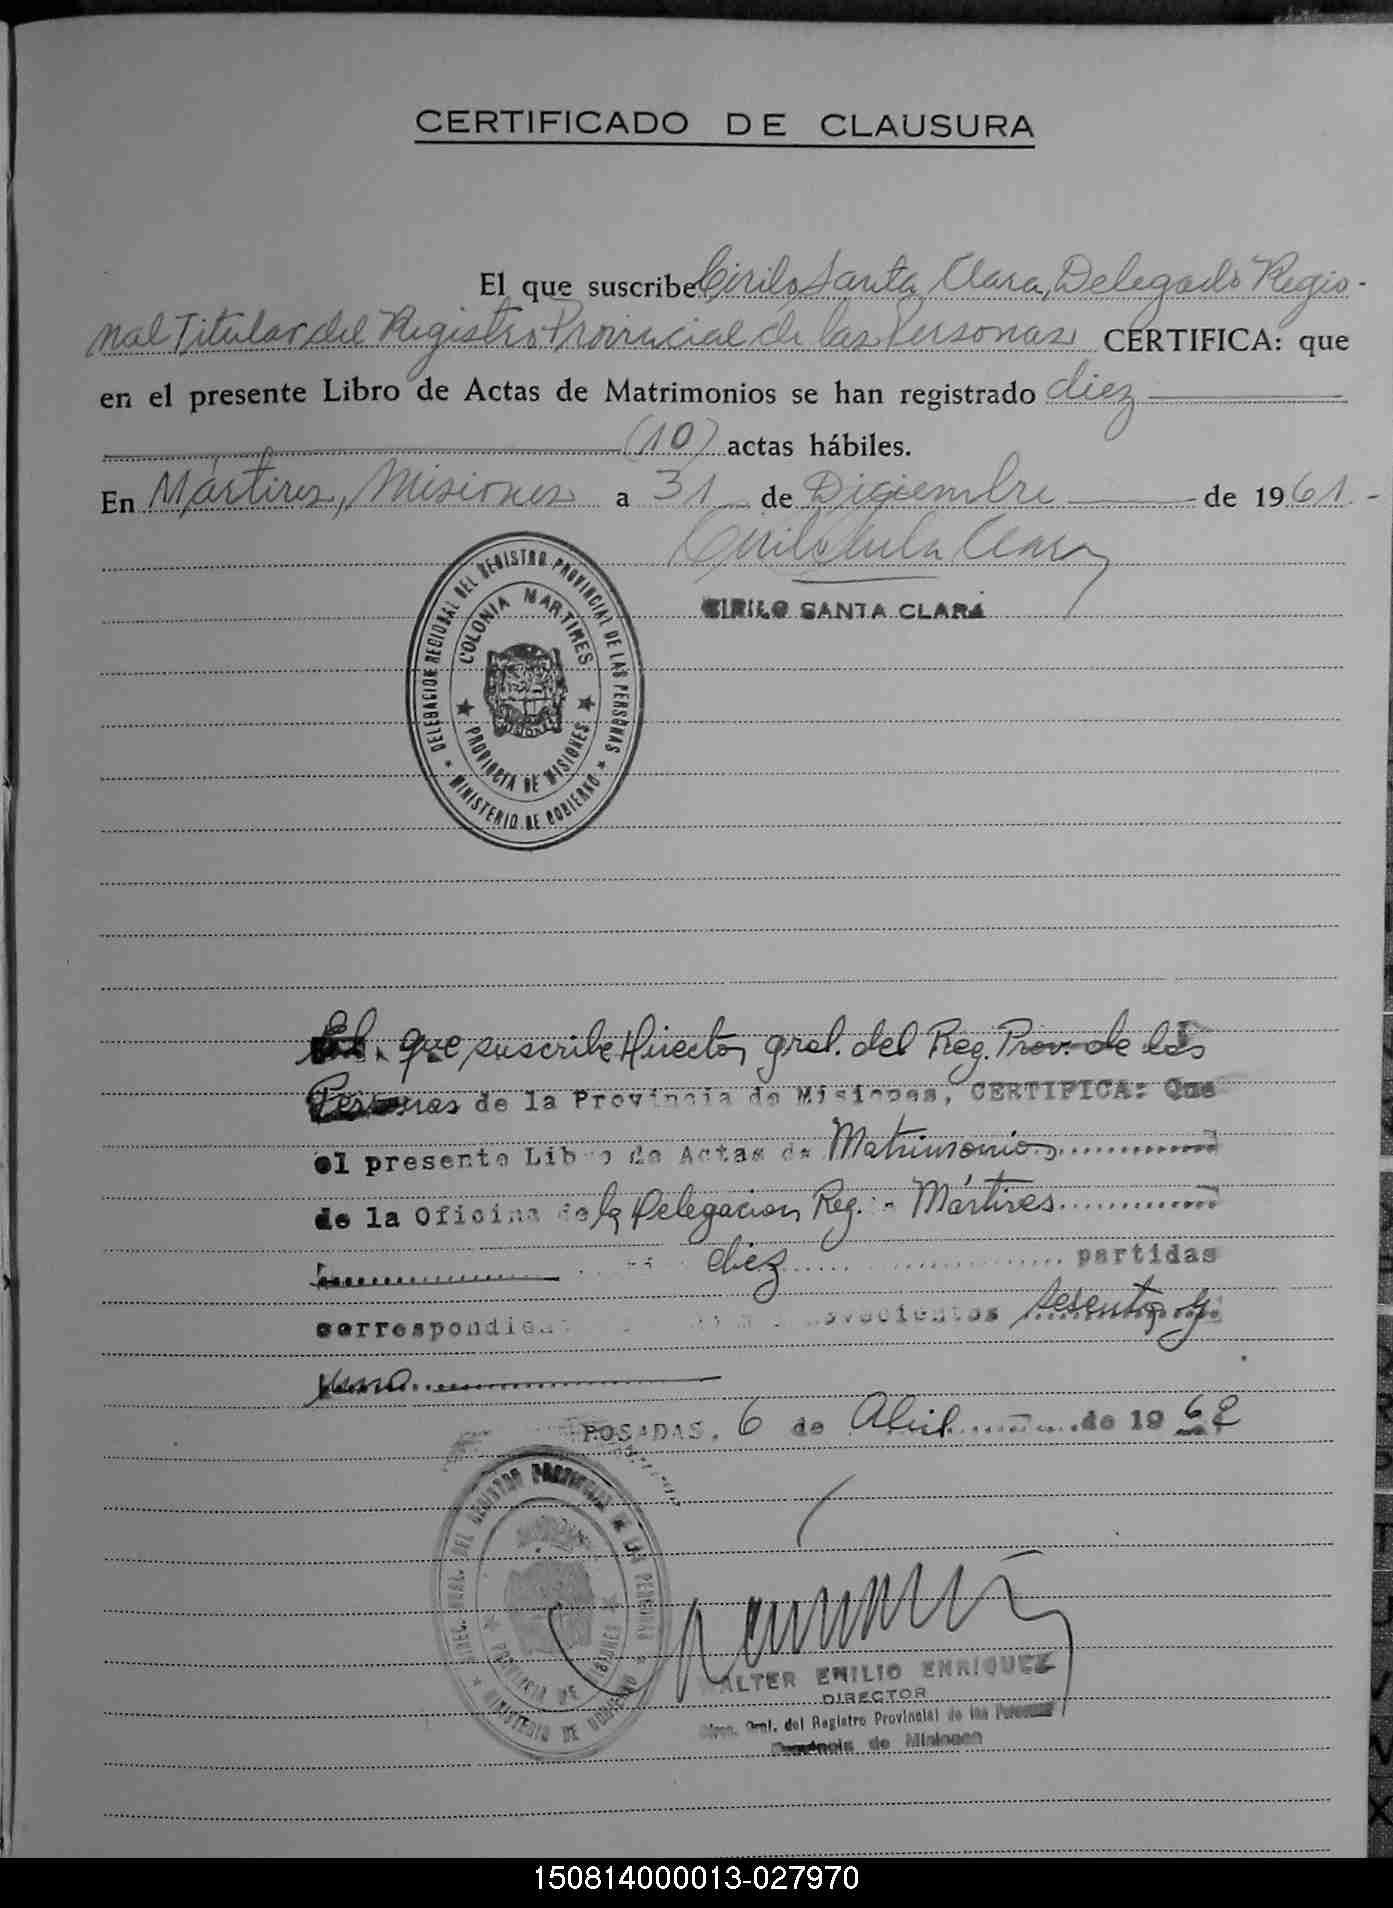 CERTIFICADO DE CLAUSURA
El que suscribe Cirilo Santa Clara, Delegado Regio-
nal Titular del Registro Provincial de las Personas CERTIFICA: que
en el presente Libro de Actas de Matrimonios se han registrado diez
(10) actas hábiles.
En Mártires, Misiones a 31 de Diciembre de 1961.-
Cirilo Santa Clara
CIRILO SANTA CLARA
DELEGACION REGIONAL DEL REGISTRO PROVINCIAL DE LAS PERSONAS
COLONIA MARTIRES
PROVINCIA DE MISIONES
MINISTERIO DE GOBIERNO
El que suscribe Director gral. del Reg. Prov. de las
Personas de la Provincia de Misiones, CERTIFICA: Que
el presente Libro de Actas de Matrimonios
de la Oficina de la Delegacion Reg. Mártires
diez partidas
correspondien novecientos sesenta y
uno
POSADAS, 6 de Abril de 1962
DIREC. GRAL. DEL REGISTRO PROVINCIAL LAS PERSONAS
PROVINCIA DE MISIONES
MINISTERIO DE GOBIERNO
WALTER EMILIO ENRIQUEZ
DIRECTOR
Direc. Gral. del Registro Provincial de las Personas
Provincia de Misiones
150814000013-027970